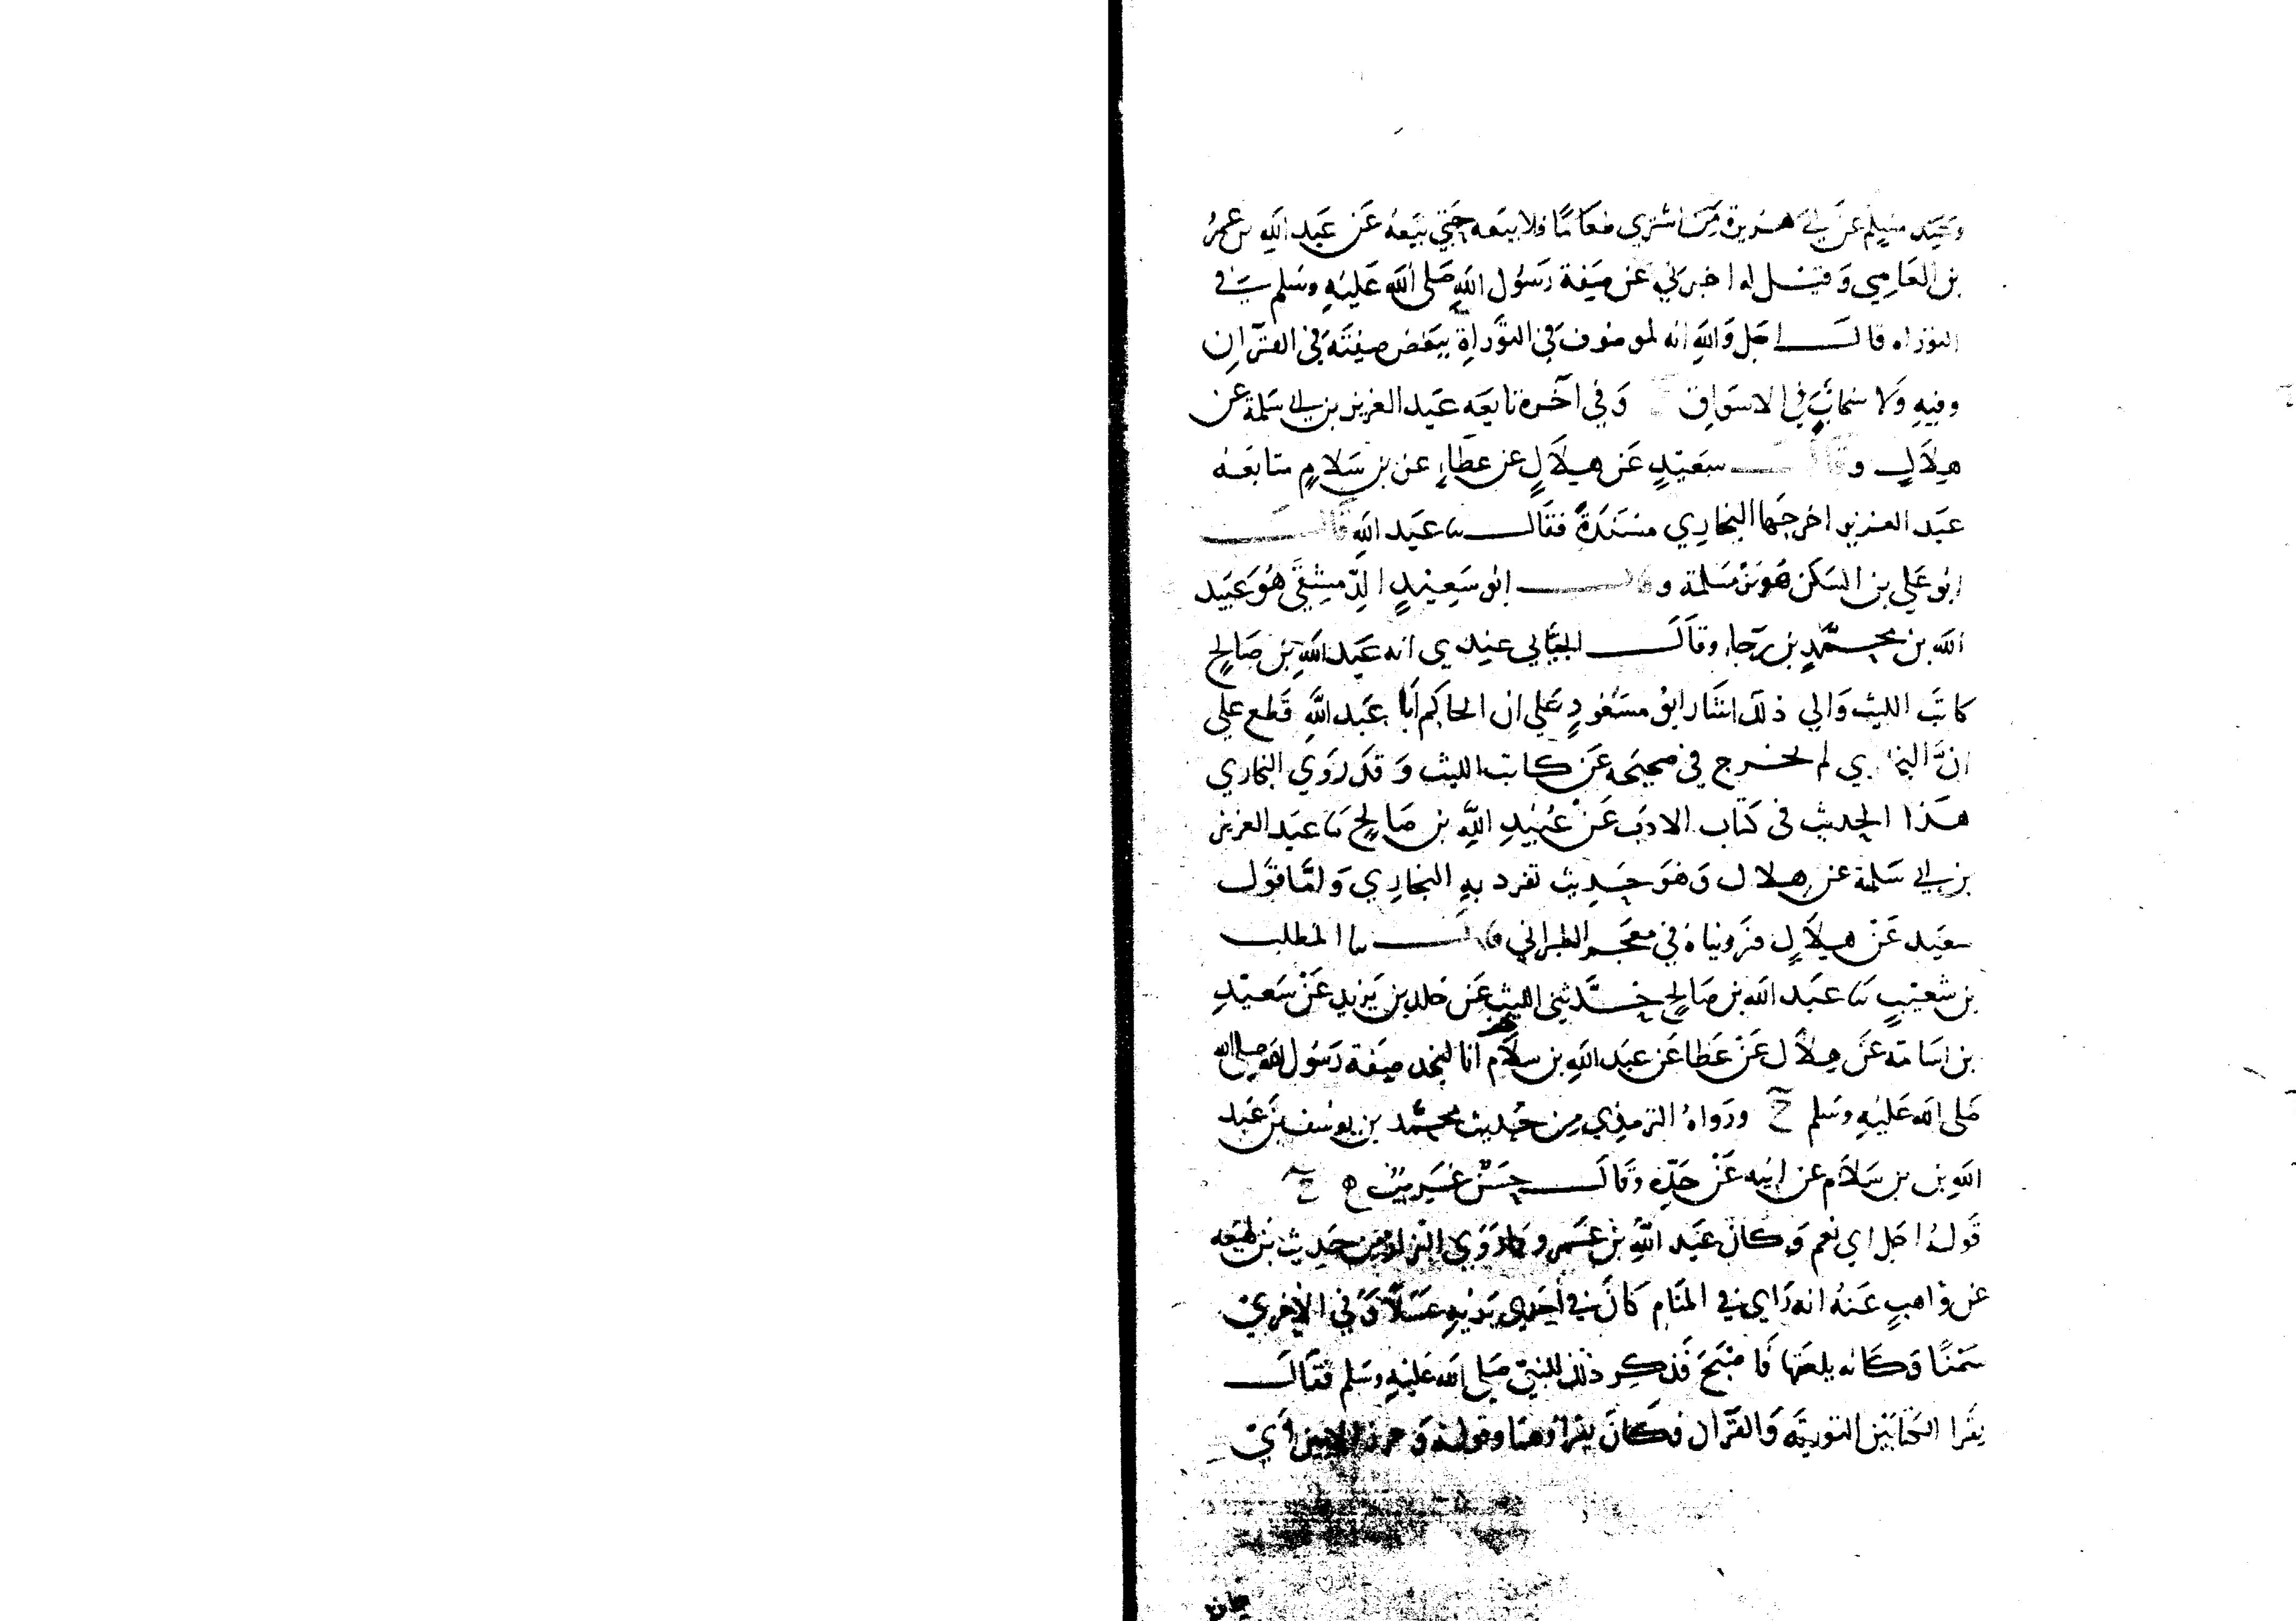 وعند مسلم عن ابي هريرة من اشتري طعاما فلا يبعه حتي عن عبد الله بن عمرو
بن العاصي وقيل له اخبرني عن صفة رسول الله صلى الله عليه وسلم في
التوراه قال اجل والله انه لموصوف في التوراة ببعض صفته في القرآن
وفيه ولا سخاب في الاسواق وفي آخره تابعه عبد العزيز بن ابي سلمة عن
هلال وقال سعيد عن هلال عن عطاء عن بن سلام متابعه
عبد العزيز اخرجها البخاري مسندة فقال ثنا عبد الله قال
ابو علي بن السكن هو بن مسلمة وقال ابو سعيد الدمشقي هو عبد
الله بن محمد بن رجاء وقال الجياني عندي انه عبد الله بن صالح
كاتب الليث والي ذلك اشار ابو مسعود علي ان الحاكم ابا عبد الله قطع علي
ان البخاري لم يخرج في صحيحه عن كاتب الليث وقد روي البخاري
هذا الحديث في كتاب الادب عن عبيد الله بن صالح ثنا عبد العزيز
بن ابي سلمة عن هلال وهو حديث تفرد به البخاري ولما قول
سعيد عن هلال فرويناه في معجم الطبراني قال ثنا المطلب
بن شعيب ثنا عبد الله بن صالح حدثني الليث عن خلد بن يزيد عن سعيد
بن اسامة عن هلال عن عطا عن عبد الله بن سلام انا لنجد صفة رسول الله صلى الله
صلى الله عليه وسلم ح ورواه الترمذي من حديث محمد بن يوسف بن عبد
الله بن بن سلام عن ابيه عن جده وقال حسن غريب ه ح
قوله اجل اي نعم وكان عبد الله بن عمرو روي البزار من حديث بن لهيعه
عن واهب عنه انه راي في المنام كان في احدي يديه عسلا وفي الاخري
سمنا وكانه يلعقها فاصبح فذكر ذلك للنبي صلى الله عليه وسلم فقال
يقرا الكتابين التورية والقرآن فكان يقراوهما وقوله وحرزا للاميين اي